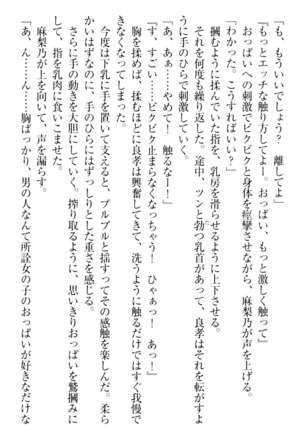 「も、もういいでしょう？　離してよ」
「もっとエッチな触り方してよー。おっぱい、もっと激しく触って」
おっぱいへの刺激でビクビクと身体を痙攣させながら、麻梨乃が声を上げる。
「わかった。こうすればいい？」
掴むように揉んでいた指を、乳房を滑らせるように上下させる。
それを何度も繰り返した。途中、ツンと勃つ乳首があって、良孝はそれを転がすよ
うに手のひらで刺激していく。
「あ、あぁーー……やめて！　触るなーー！」
「す、すごい……ビクビク止まらなくなっちゃう！　ひゃぁっ！　あっ！」
胸を揉めば、揉むほどに良孝は興奮してきて、洗うように触るだけではすぐ我慢で
きなくなってしまった。
今度は下乳に手を置いて支えると、プルプルと揺すってその感触を楽しんだ。柔ら
かいはずなのに、手のひらにはずっしりとした重さを感じる。
さらに手の動きを大胆にしていく。搾り取るように、思いきりおっぱいを鷲掴みに
して、指を乳肉に食いこませた。
麻梨乃が上を向いて、声を漏らす。
「あ、ん……ん……胸ばっかり、男の人なんて所詮女の子のおっぱいが好きなだけな